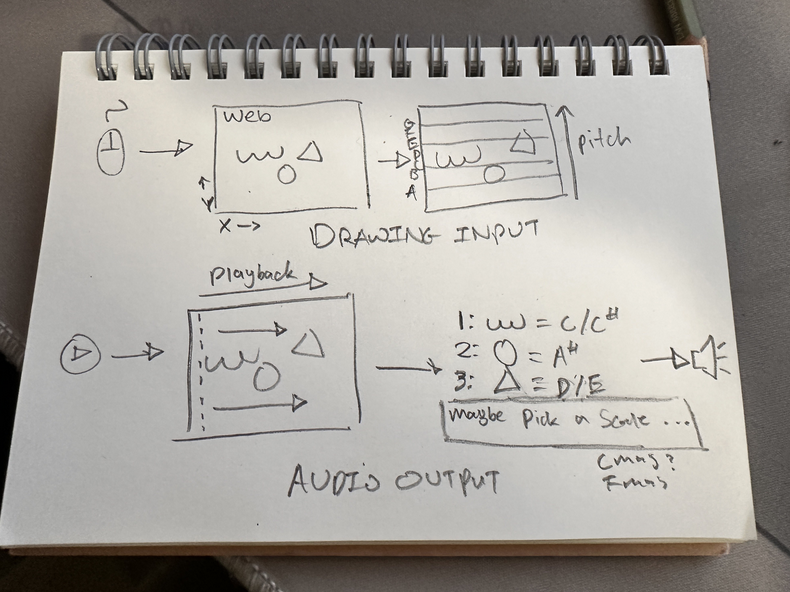 Web
pitch
A
X
DRAWING INPUT
Playback
1: = C/C#
2: = A#
3: = D/E
maybe Pick a Scale ...
Cmaj?
Fmaj
AUDIO OUTPUT